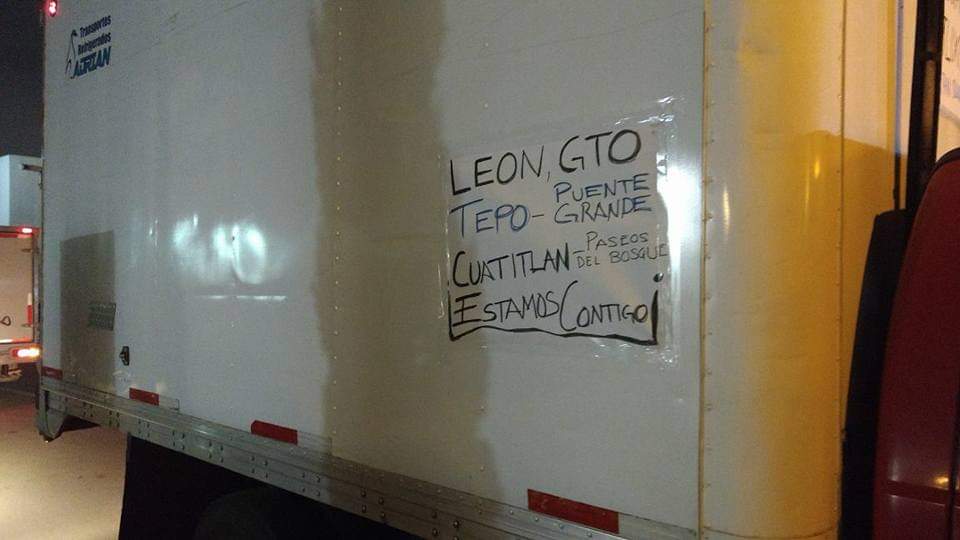 Transportes
Refrigerados
ADRIAN
LEON, GTO
TEPO - PUENTE GRANDE
CUATITLAN - PASEOS DEL BOSQUE
¡ESTAMOS CONTIGO!